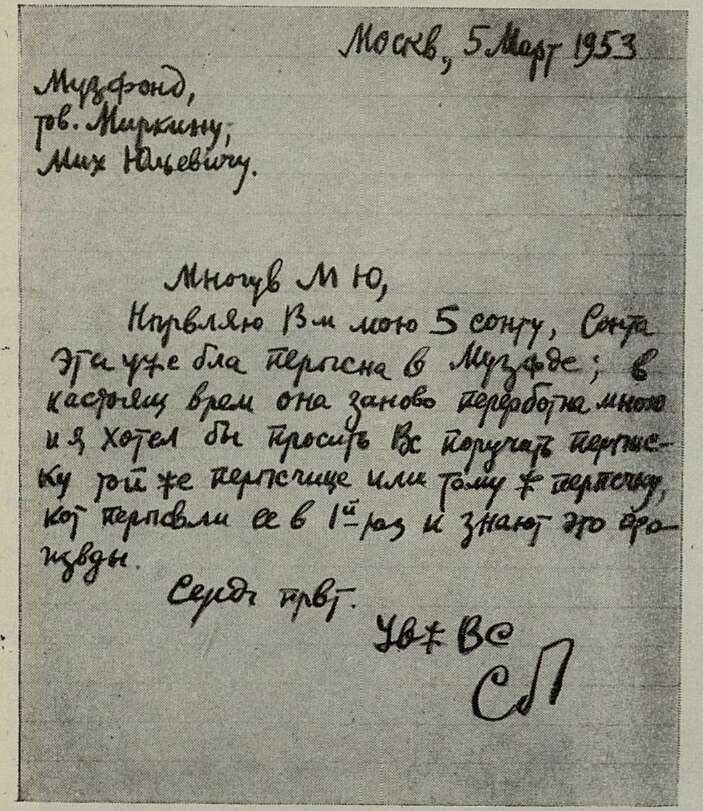 Москв, 5 Март 1953
Музфонд,
тов. Миркину,
Мих Юльевичу.
Многув М Ю,
Нпрвляю Вм мою 5 сонту, Сонта
эта уже бла перпсна в Музфде; в
настоящ врем она заново перерботна мною
и я хотел бы просить Вс поручить перпис-
ку той же перпсчице или тому ж перпсчку,
кот перпсвли ее в 1й раз и знают это про-
извды.
Сердч првт.
Ув ж Вс
СП